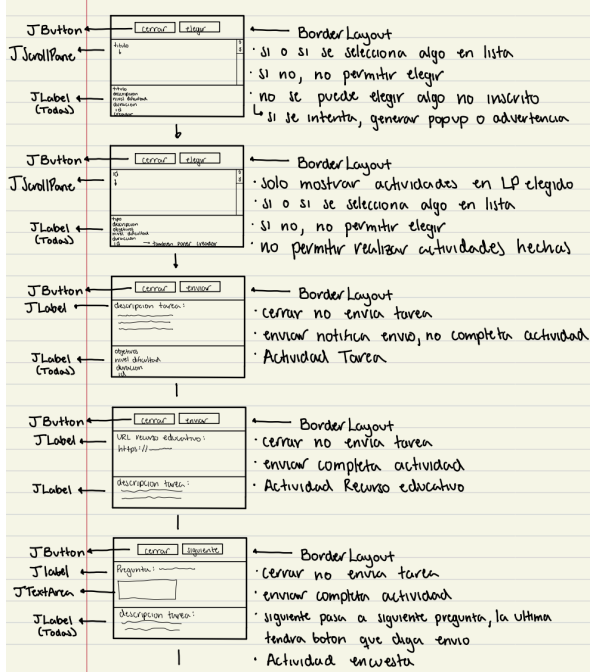 JButton
cerrar elegir
Border Layout
JScrollPane
titulo
· si o si se selecciona algo en lista
· si no, no permitir elegir
JLabel
(Todas)
titulo
descripcion
nivel dificultad
duracion
id
creador
· no se puede elegir algo no inscrito
si se intenta, generar popup o advertencia
JButton
cerrar elegir
Border Layout
JScrollPane
id
· solo mostrar actividades en LP elegido
· si o si se selecciona algo en lista
JLabel
(Todas)
tipo
descripcion
objetivos
nivel dificultad
duracion
id → tambien poner creador
· si no, no permitir elegir
· no permitir realizar actividades hechas
JButton
cerrar enviar
Border Layout
JLabel
descripcion tarea:
· cerrar no envia tarea
· enviar notifica envio, no completa actividad
JLabel
(Todas)
objetivos
nivel dificultad
duracion
id
· Actividad Tarea
JButton
cerrar enviar
Border Layout
JLabel
URL recurso educativo:
https://
· cerrar no envia tarea
· enviar completa actividad
JLabel
descripcion tarea:
· Actividad Recurso educativo
JButton
cerrar siguiente
Border Layout
Jlabel
Pregunta:
· cerrar no envia tarea
JTextArea
· enviar completa actividad
JLabel
(Todas)
descripcion tarea:
· siguiente pasa a siguiente pregunta, la ultima
tendra boton que diga envio
· Actividad encuesta